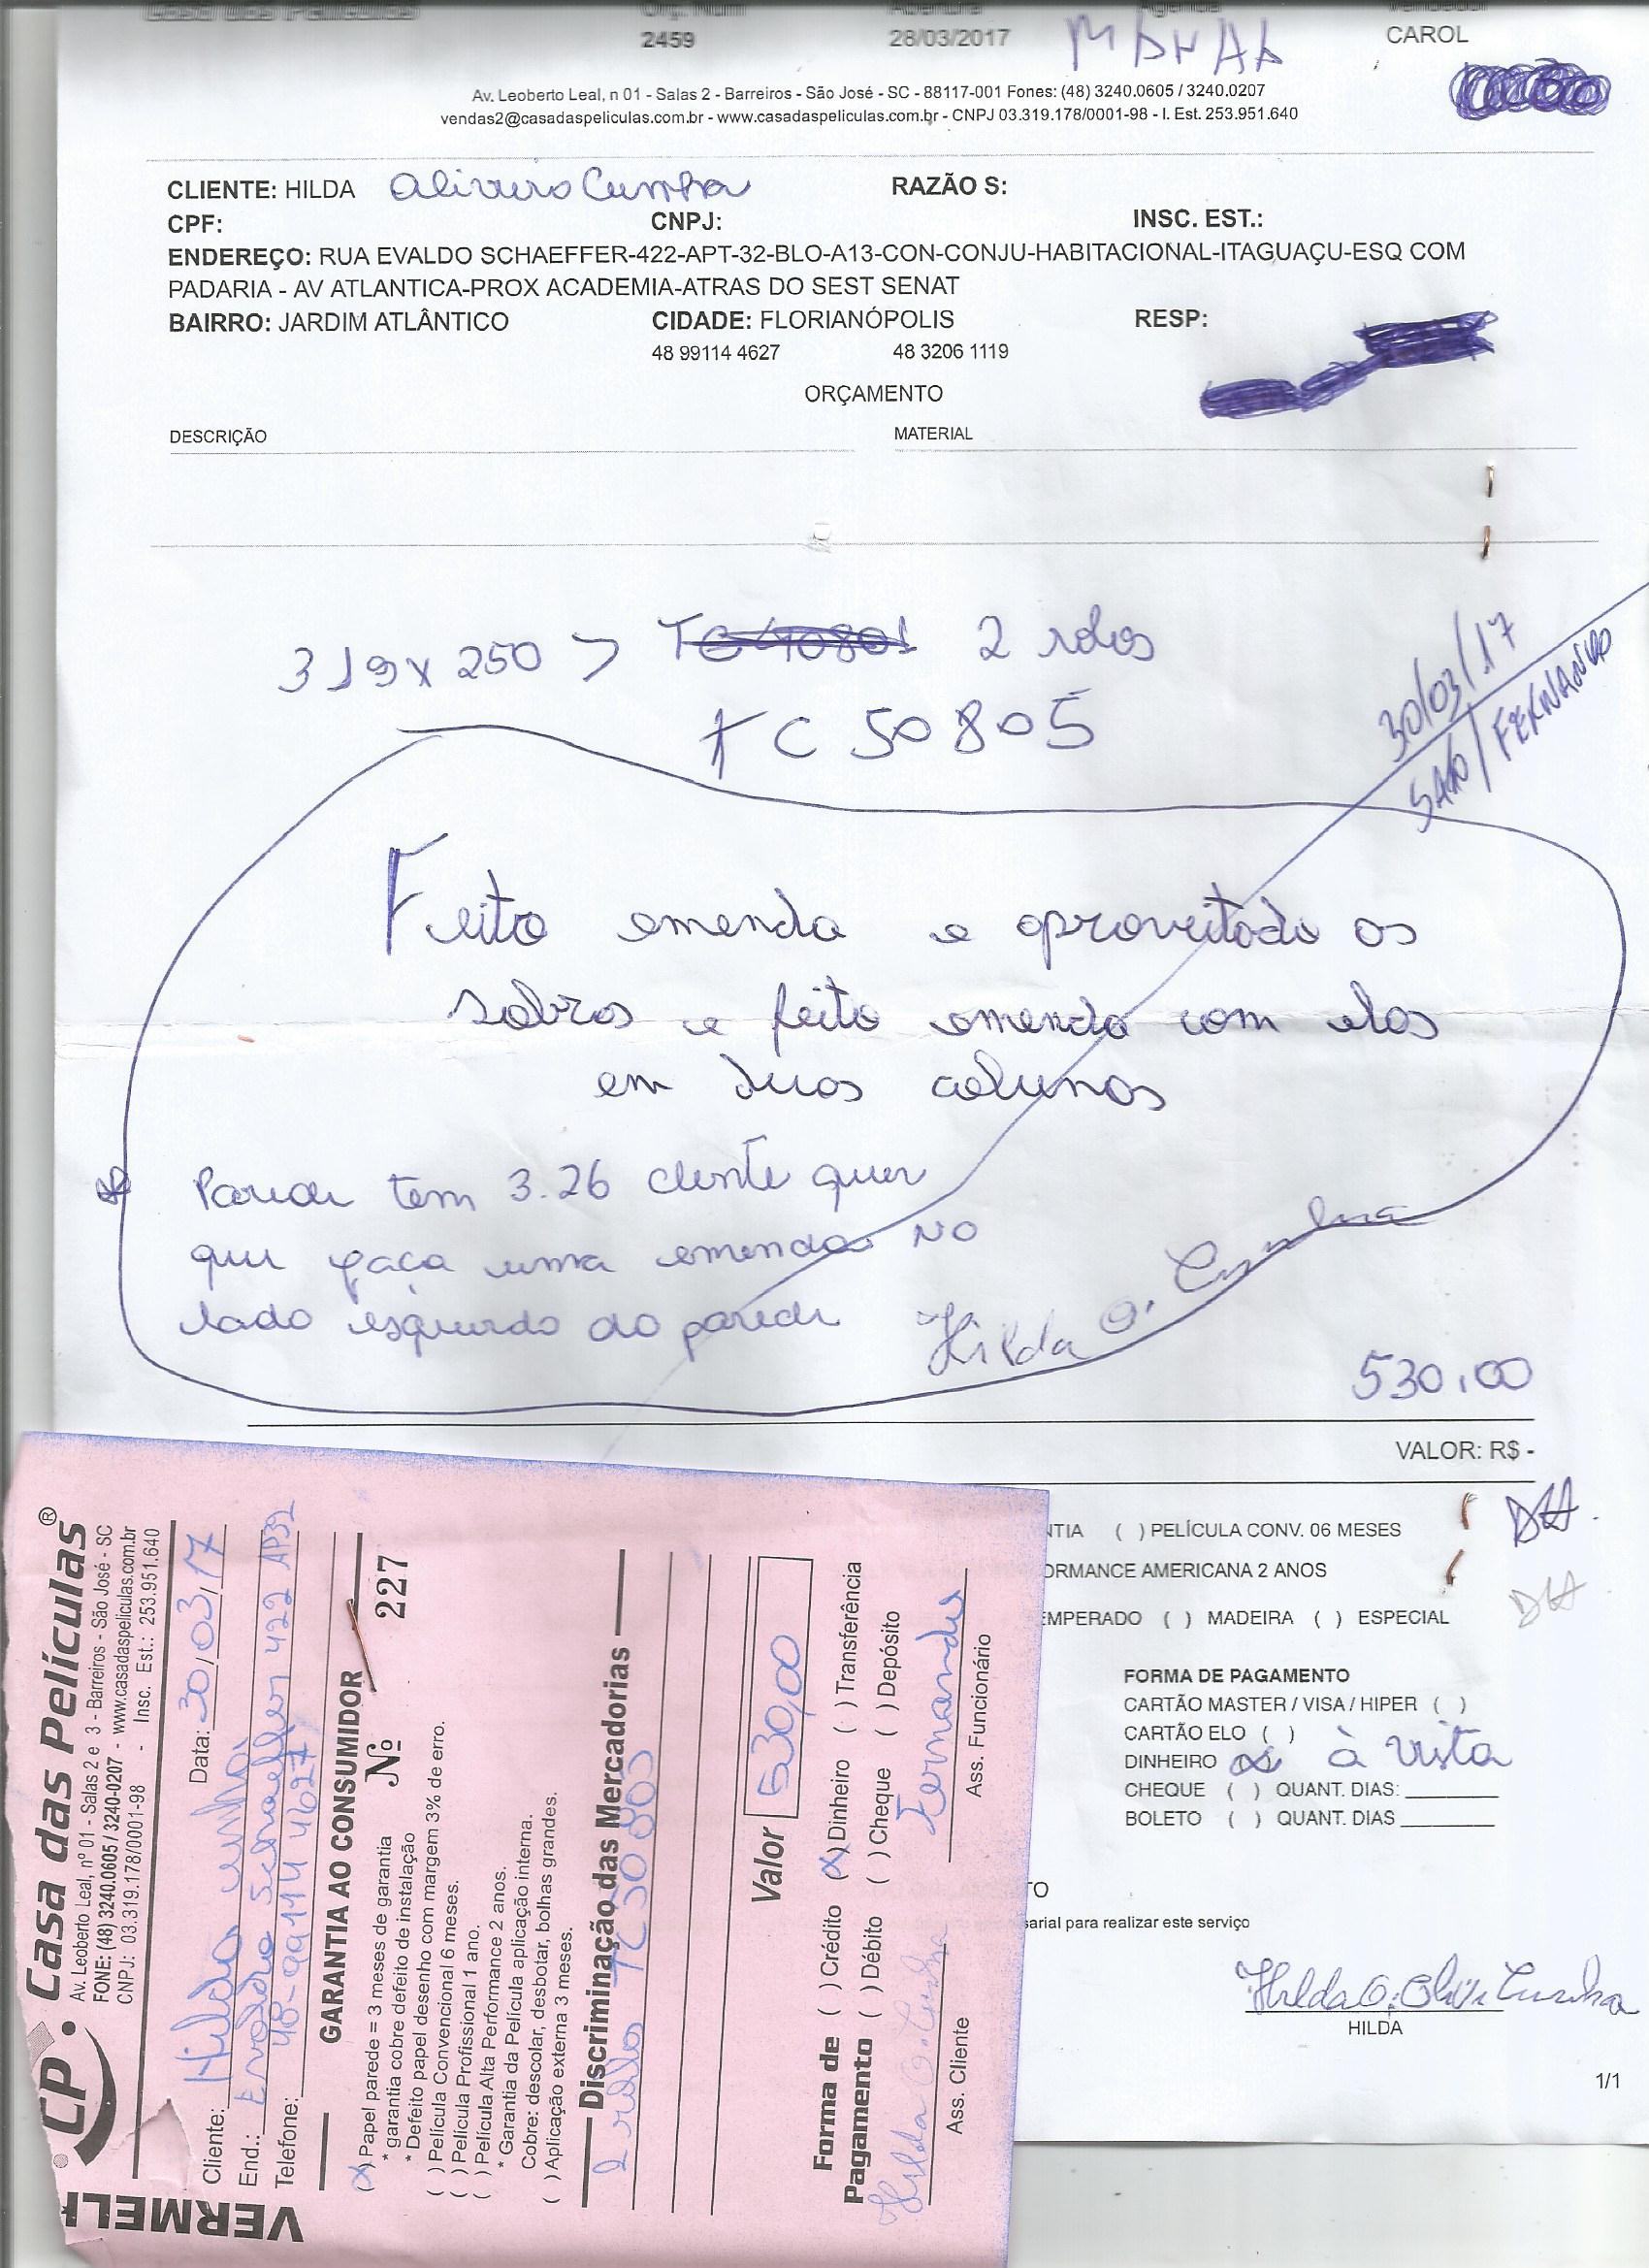 2459 28/03/2017 MANHA CAROL
Av. Leoberto Leal, n 01 - Salas 2 - Barreiros - São José - SC - 88117-001 Fones: (48) 3240.0605 / 3240.0207
vendas2@casadaspeliculas.com.br - www.casadaspeliculas.com.br - CNPJ 03.319.178/0001-98 - I. Est. 253.951.640
CLIENTE: HILDA Cunha RAZÃO S:
CPF: CNPJ: INSC. EST.:
ENDEREÇO: RUA EVALDO SCHAEFFER-422-APT-32-BLO-A13-CON-CONJU-HABITACIONAL-ITAGUAÇU-ESQ COM
PADARIA - AV ATLANTICA-PROX ACADEMIA-ATRAS DO SEST SENAT
BAIRRO: JARDIM ATLÂNTICO CIDADE: FLORIANÓPOLIS RESP:
48 99114 4627 48 3206 1119
ORÇAMENTO
DESCRIÇÃO MATERIAL
319 x 250 > TC 40801 2 rolos
TC 50805
30/03/17
/ FERNANDO
Feito emenda e aproveitado as
sobras e feito emenda com elas
em duas colunas
Parede tem 3.26 cliente quer
que faça uma emenda no
lado esquerdo da parede
Hilda O. Cunha
530,00
VALOR: R$ -
NTIA ( ) PELÍCULA CONV. 06 MESES
ORMANCE AMERICANA 2 ANOS
EMPERADO ( ) MADEIRA ( ) ESPECIAL
FORMA DE PAGAMENTO
CARTÃO MASTER / VISA / HIPER ( )
CARTÃO ELO ( )
DINHEIRO (x) à vista
CHEQUE ( ) QUANT. DIAS:
BOLETO ( ) QUANT. DIAS
TO
sarial para realizar este serviço
HILDA
1/1
CP. Casa das Películas®
Av. Leoberto Leal, nº 01 - Salas 2 e 3 - Barreiros - São José - SC
FONE: (48) 3240.0605 / 3240-0207 - www.casadaspeliculas.com.br
CNPJ: 03.319.178/0001-98 - Insc. Est.: 253.951.640
Data: 30/03/17
Cliente: Hilda Cunha
End.: Evaldo Schaeffer 422 AP32
Telefone: 48-99114 4627
GARANTIA AO CONSUMIDOR
Nº 227
(x) Papel parede = 3 meses de garantia
* garantia cobre defeito de instalação
* Defeito papel desenho com margem 3% de erro.
( ) Película Convencional 6 meses.
( ) Película Profissional 1 ano.
( ) Película Alta Performance 2 anos.
* Garantia da Película aplicação interna.
Cobre: descolar, desbotar, bolhas grandes.
( ) Aplicação externa 3 meses.
Discriminação das Mercadorias
2 rolos TC 50805
Valor 530,00
Forma de Pagamento ( ) Crédito (x) Dinheiro ( ) Transferência
( ) Débito ( ) Cheque ( ) Depósito
Hilda O. Cunha Fernandes
Ass. Cliente Ass. Funcionário